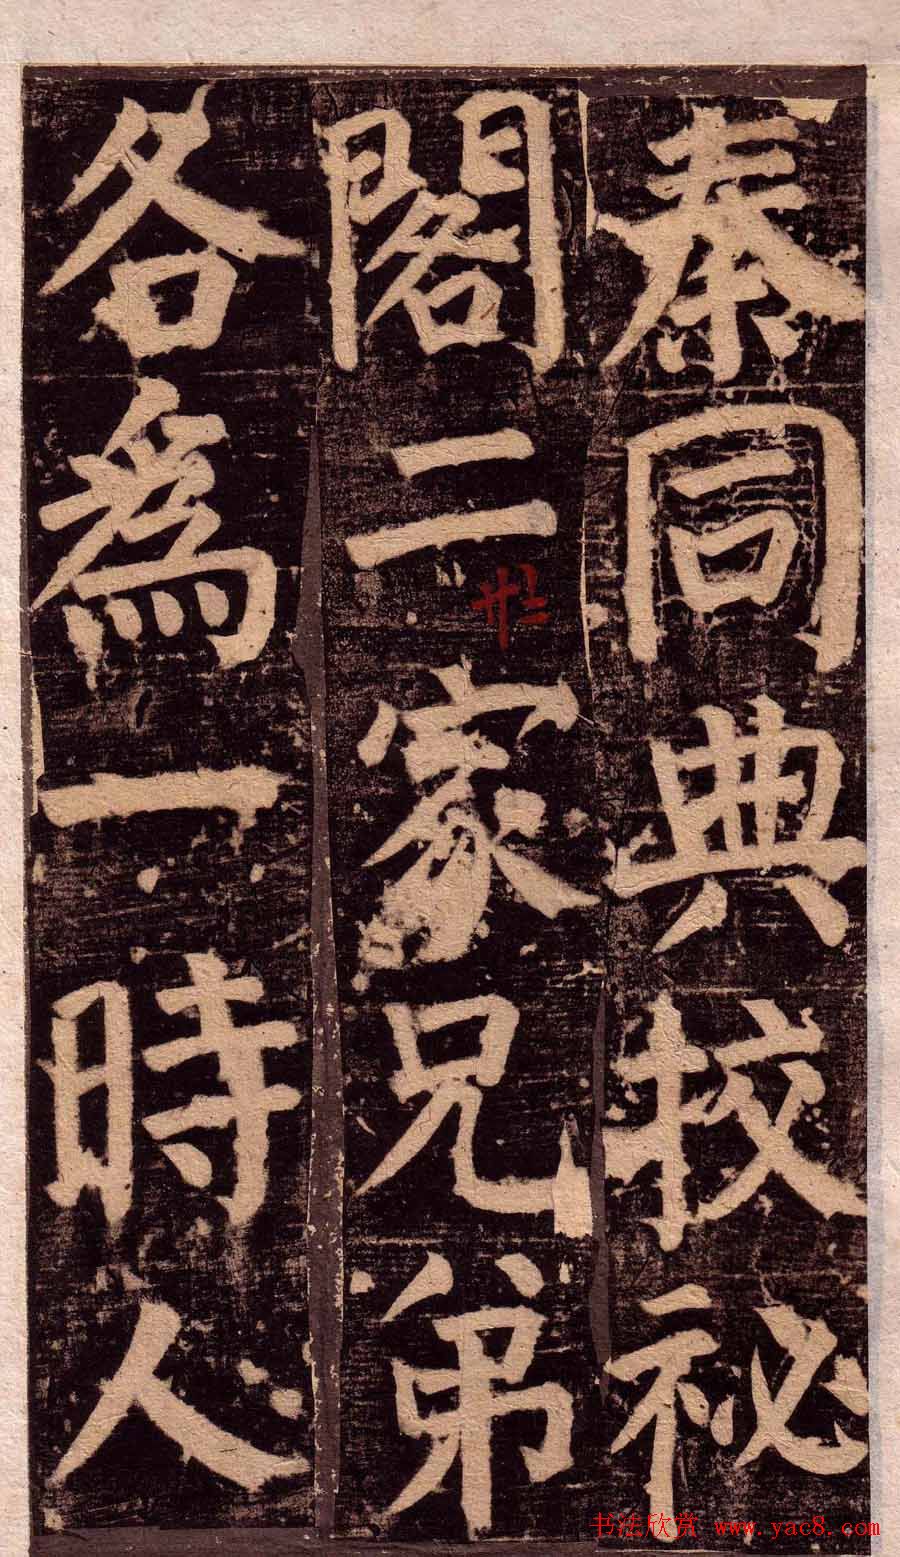 秦同典挍祕
閣二家兄弟
各爲一時人
书法欣赏 www.yac8.com